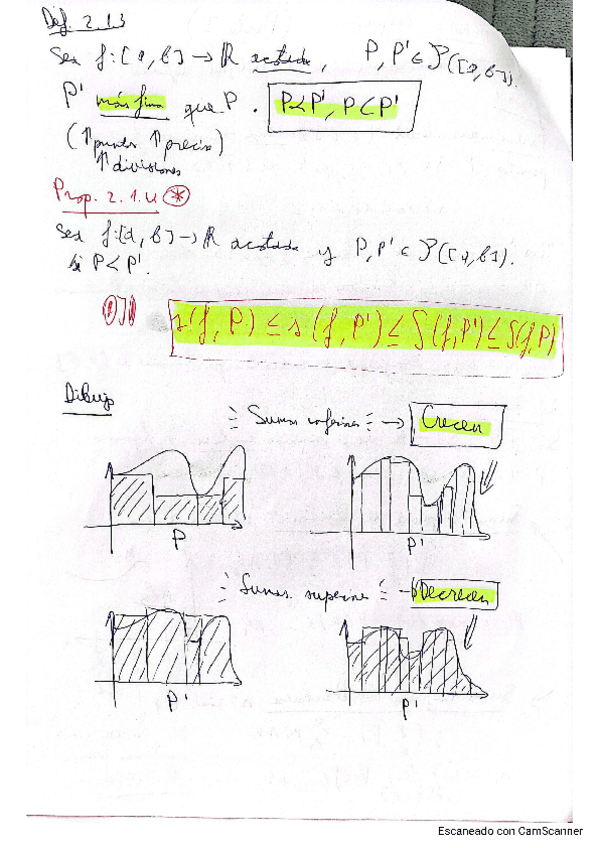 Def. 2.1.3
Sea f:[a,b] → ℝ acotada, P,P'∈𝒫([a,b]).
P' más fina que P. P≺P', P⊂P'
(↑puntos ↑precisio)
↑divisiones
Prop. 2.1.4 *
Sea f:[a,b]→ℝ acotada y P,P'∈𝒫([a,b]).
Si P<P'.
s(f,P) ≤ s(f,P') ≤ S(f,P') ≤ S(f,P)
Dibujo
Sumas inferiores → Crecen
P P'
Sumas superiores → Decrecen
P' P'
Escaneado con CamScanner